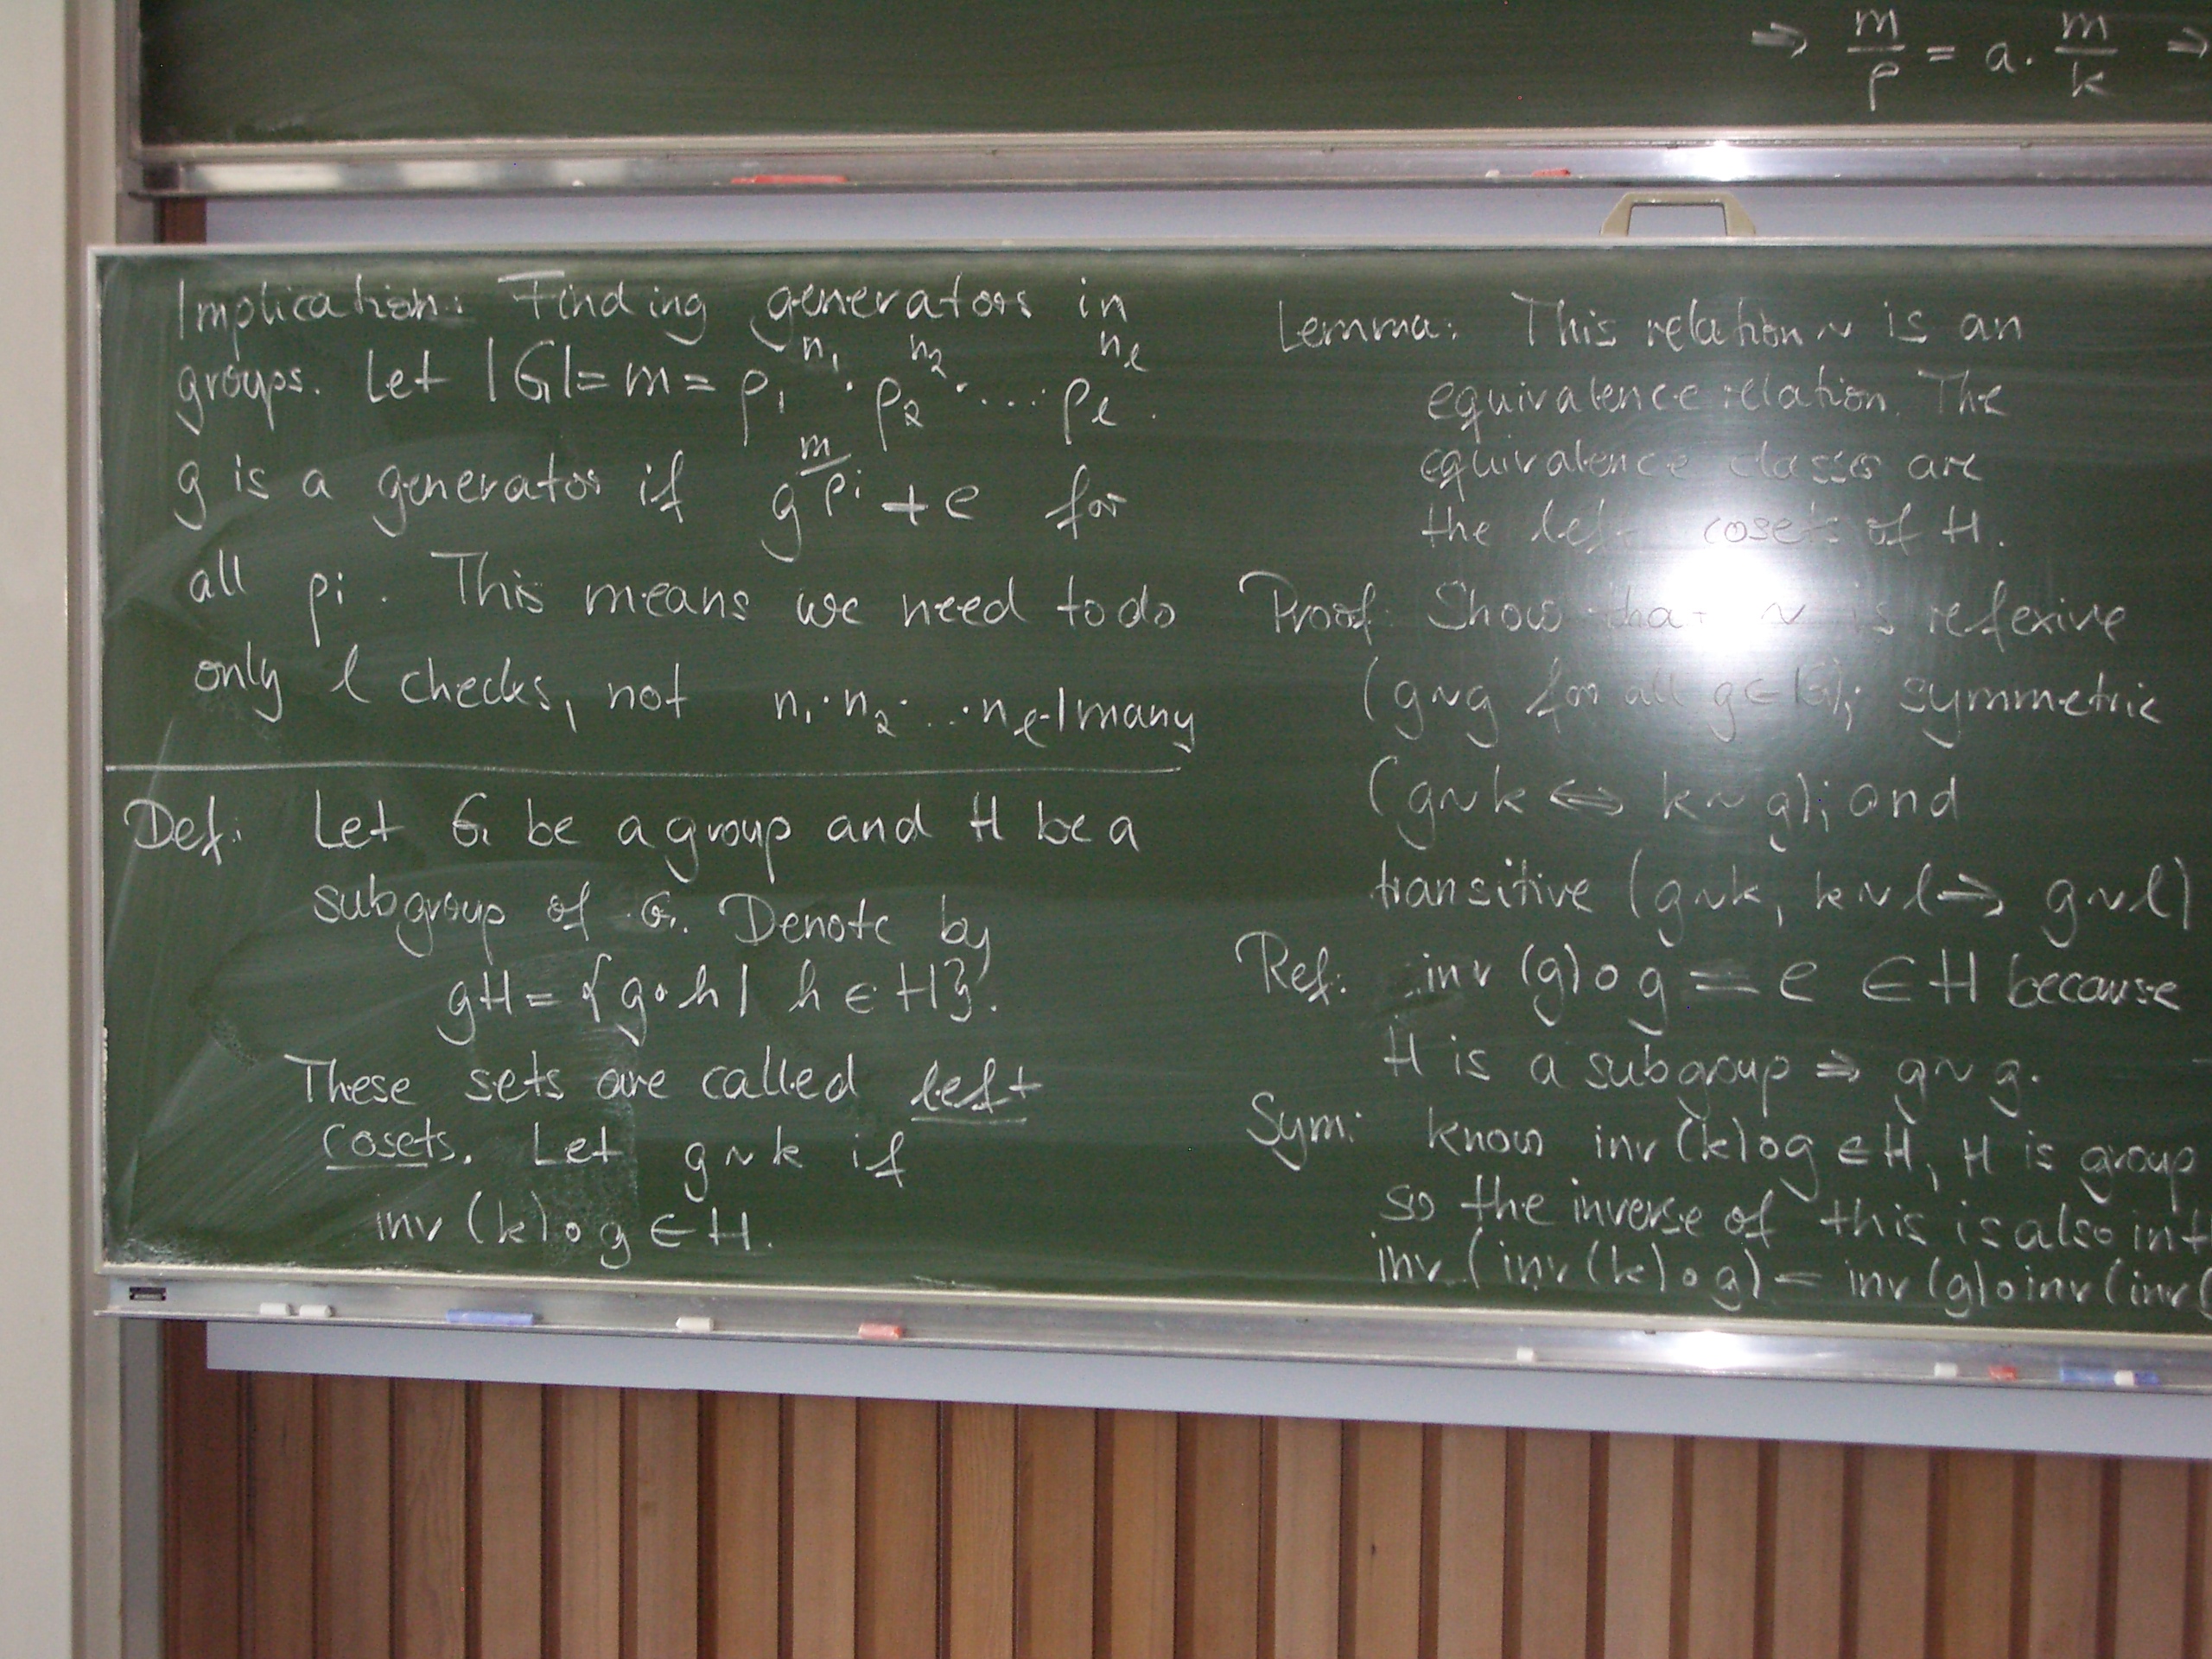 ⇒ m/p = a · m/k ⇒
Implication: Finding generators in
groups. Let |G| = m = p₁^n₁ · p₂^n₂ · ... p_ℓ^n_ℓ.
g is a generator if g^(m/pi) ≠ e for
all pi. This means we need to do
only ℓ checks, not n₁·n₂· ... ·n_ℓ-1 many
Def: Let G be a group and H be a
subgroup of G. Denote by
gH = {g∘h | h ∈ H}.
These sets are called left
cosets. Let g~k if
inv (k)∘g ∈ H.
Lemma: This relation ~ is an
equivalence relation. The
equivalence classes are
the left cosets of H.
Proof: Show that ~ is refexive
(g~g for all g∈G); symmetric
(g~k ⇔ k~g); and
transitive (g~k, k~ℓ → g~ℓ)
Ref: inv (g)∘g = e ∈ H because
H is a subgroup ⇒ g~g.
Sym: know inv (k)∘g ∈ H, H is group
so the inverse of this is also in H
inv (inv (k)∘g) = inv (g)∘inv (inv (